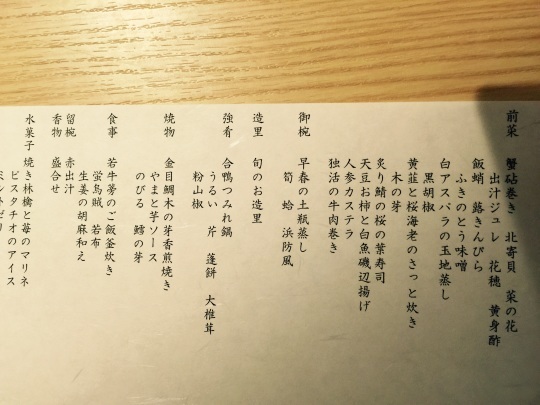 前菜　蟹砧巻き　北寄貝　菜の花
出汁ジュレ　花穂　黄身酢
飯蛸　蕗きんぴら
ふきのとう味噌
白アスパラの玉地蒸し
黒胡椒
黄韮と桜海老のさっと炊き
木の芽
炙り鯖の桜の葉寿司
天豆お柿と白魚磯辺揚げ
人参カステラ
独活の牛肉巻き
御椀　早春の土瓶蒸し
筍　蛤　浜防風
造里　旬のお造里
強肴　合鴨つみれ鍋
うるい　芹　蓬餅　大椎茸
粉山椒
焼物　金目鯛木の芽香煎焼き
やまと芋ソース
のびる　鱈の芽
食事　若牛蒡のご飯釜炊き
蛍烏賊　若布
生姜の胡麻和え
留椀　赤出汁
香物　盛合せ
水菓子　焼き林檎と苺のマリネ
ピスタチオのアイス